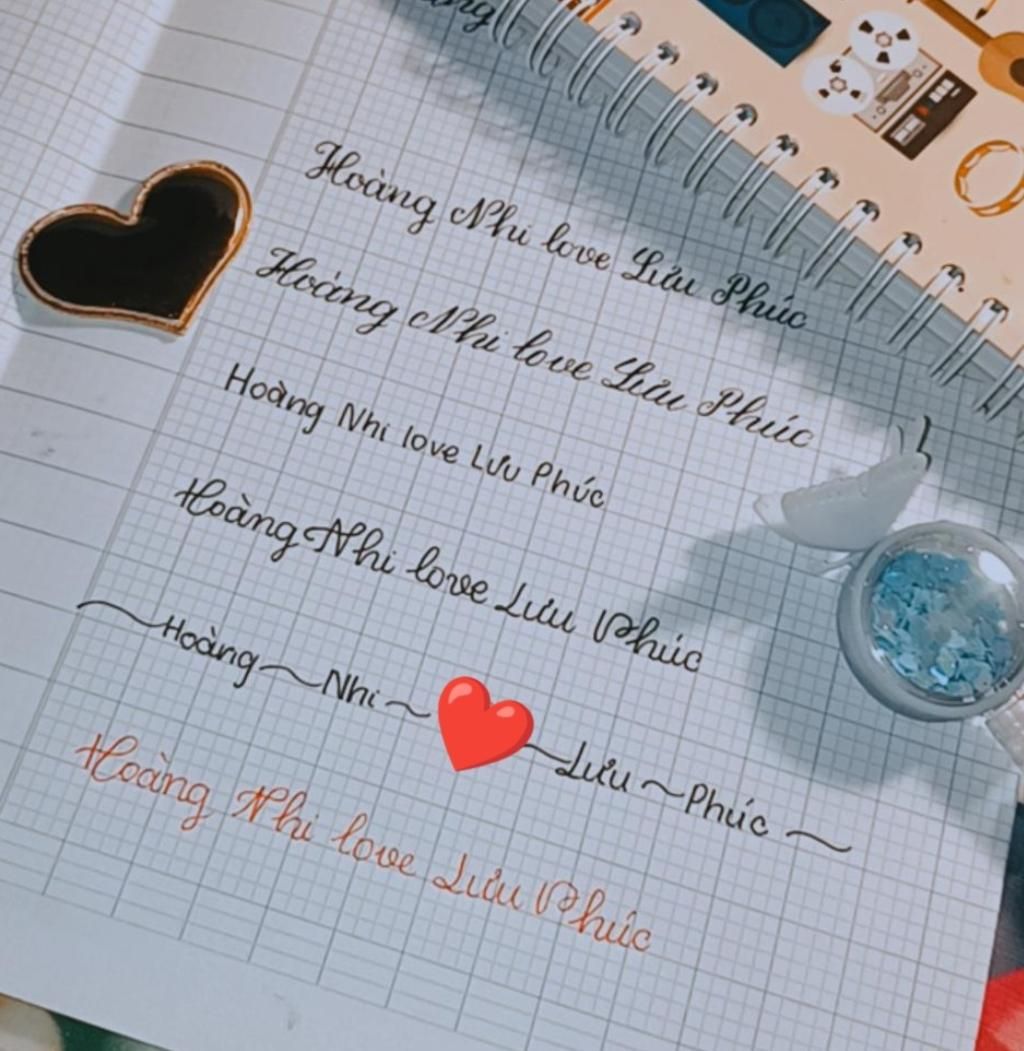 Hoàng Nhi love Lưu Phúc
Hoàng Nhi love Lưu Phúc
Hoàng Nhi love Lưu Phúc
Hoàng Nhi love Lưu Phúc
Hoàng ~ Nhi ~ ❤️ ~ Lưu ~ Phúc ~
Hoàng Nhi love Lưu Phúc